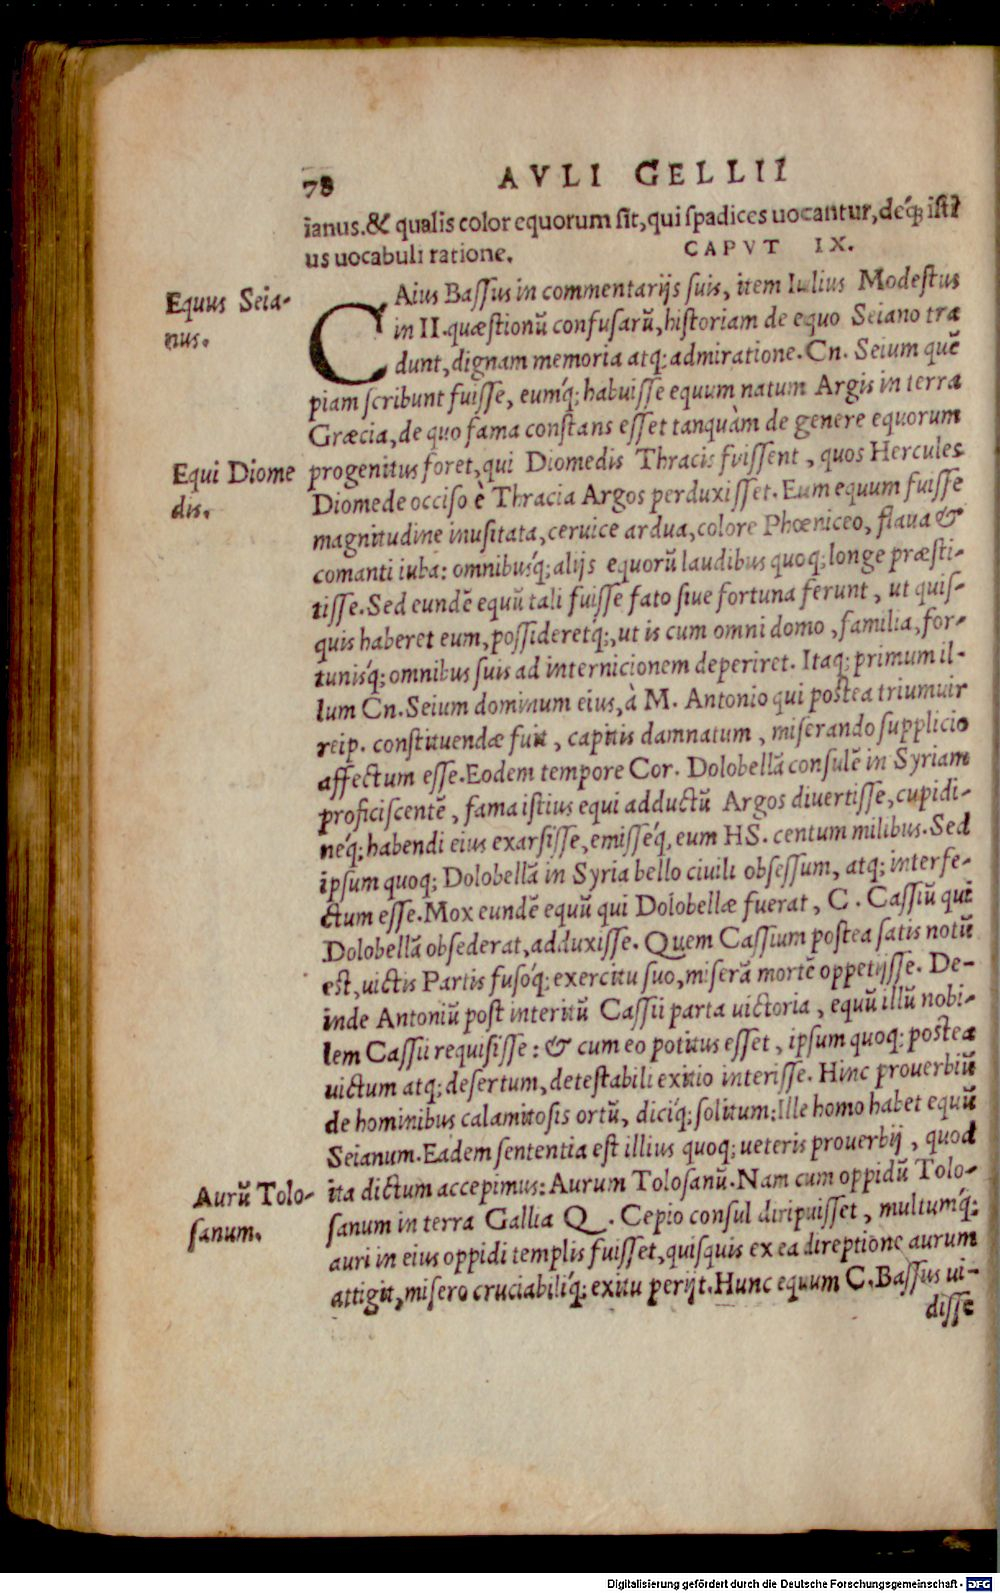 78 AVLI GELLII
ianus.& qualis color equorum sit,qui spadices uocantur,déq; isti
us uocabuli ratione. CAPVT IX.
Equus Seia-
nus.
CAius Bassus in commentarijs suis, item Iulius Modestus
in II.quæstionũ confusarũ,historiam de equo Seiano tra
dunt,dignam memoria atq;admiratione.Cn. Seium quẽ
piam scribunt fuisse, eumq́;habuisse equum natum Argis in terra
Græcia,de quo fama constans esset tanquàm de genere equorum
Equi Diome
dis.
progenitus foret,qui Diomedis Thracis fuissent , quos Hercules
Diomede occiso è Thracia Argos perduxisset. Eum equum fuisse
magnitudine inusitata,ceruice ardua,colore Phœniceo, flaua &
comanti iuba: omnibusq́;alijs equorũ laudibus quoq;longe præsti-
tisse.Sed eundẽ equũ tali fuisse fato siue fortuna ferunt , ut quis-
quis haberet eum,possideretq́;,ut is cum omni domo ,familia,for-
tunisq́;omnibus suis ad internicionem deperiret. Itaq;primum il-
lum Cn.Seium dominum eius,à M. Antonio qui postea triumuir
reip. constituendæ fuit , capitis damnatum , miserando supplicio
affectum esse.Eodem tempore Cor. Dolobellã consulẽ in Syriam
proficiscentẽ , fama istius equi adductũ Argos diuertisse,cupidi-
néq;habendi eius exarsisse,emisséq, eum HS. centum milibus.Sed
ipsum quoq; Dolobellã in Syria bello ciuili obsessum, atq;interfe-
ctum esse.Mox eundẽ equũ qui Dolobellæ fuerat , C. Cassiũ qui
Dolobellã obsederat,adduxisse. Quem Cassium postea satis notũ
est,uictis Partis fusóq;exercitu suo,miserã mortẽ oppetijsse. De-
inde Antoniũ post interitũ Cassii parta uictoria , equũ illũ nobi-
lem Cassii requisisse : & cum eo potitus esset , ipsum quoq;postea
uictum atq;desertum,detestabili exitio interisse. Hinc prouerbiũ
de hominibus calamitosis ortũ, dicíq;solitum:Ille homo habet equũ
Seianum.Eadem sententia est illius quoq;ueteris prouerbij , quod
Aurũ Tolo-
sanum.
ita dictum accepimus:Aurum Tolosanũ.Nam cum oppidũ Tolo-
sanum in terra Gallia Q. Cepio consul diripuisset , multumq́;
auri in eius oppidi templis fuisset,quisquis ex ea direptione aurum
attigit,misero cruciabilíq;exitu perijt.Hunc equum C.Bassus ui-
disse
Digitalisierung gefördert durch die Deutsche Forschungsgemeinschaft - DFG